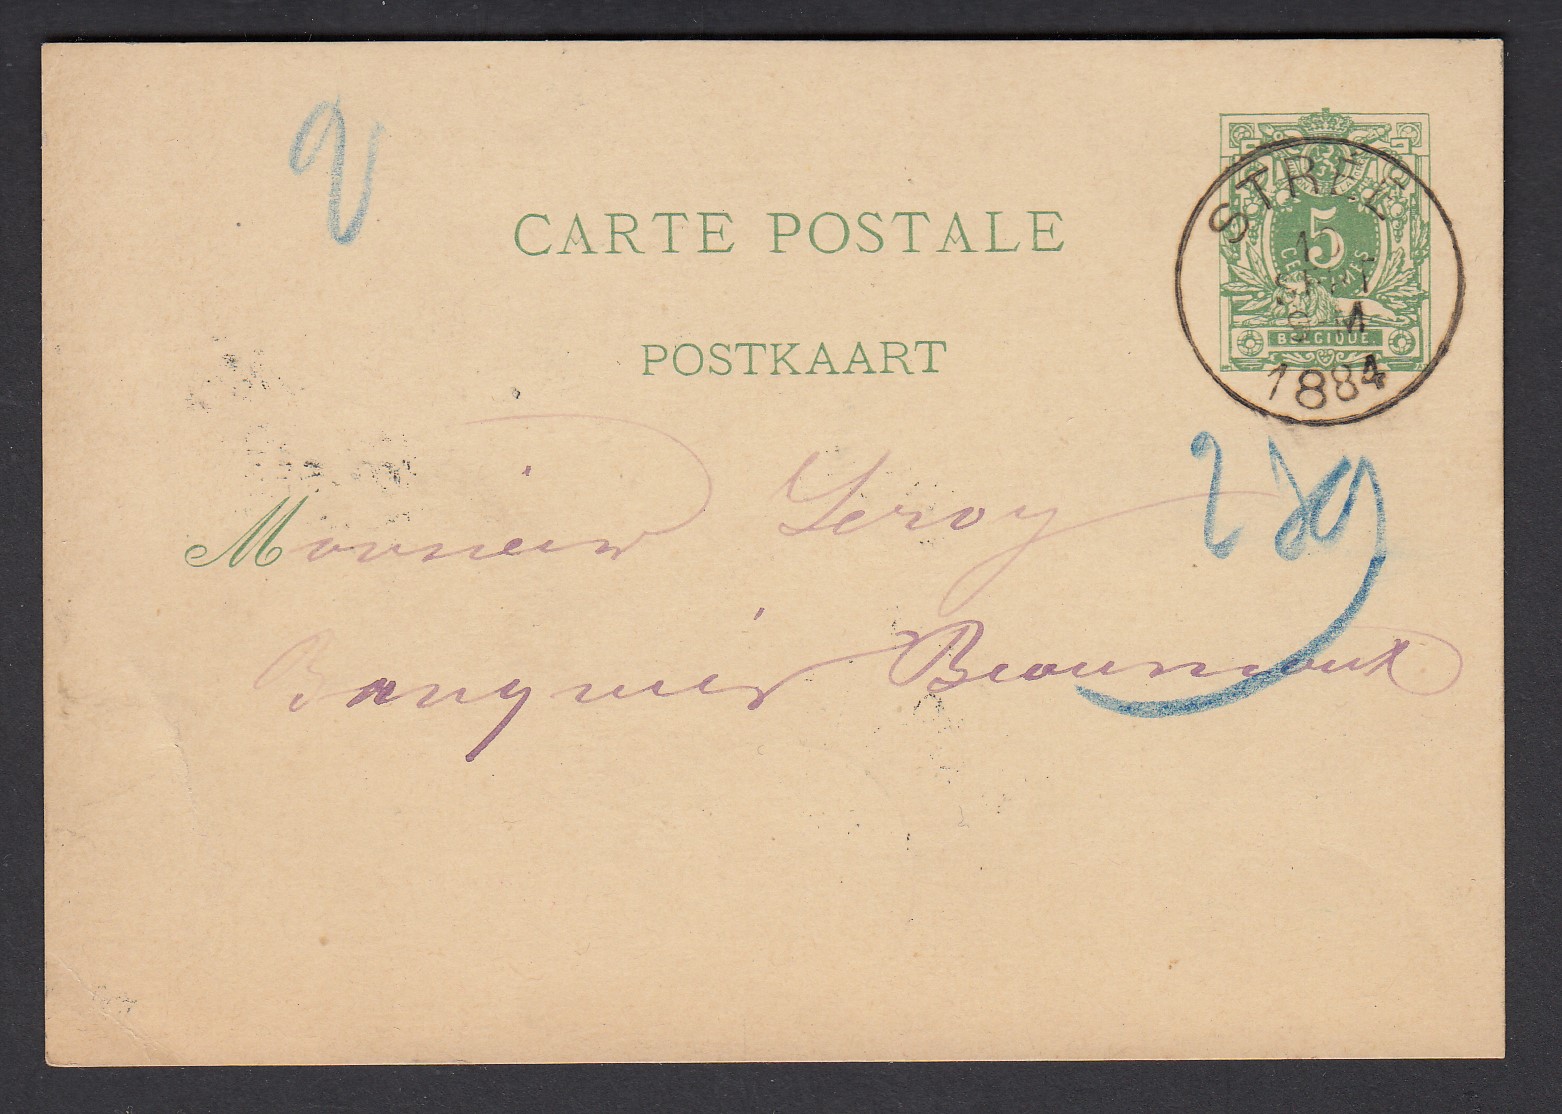 CARTE POSTALE
POSTKAART
STRÉE
1
SEPT
9-M
1884
5
CENTIMES
BELGIQUE
Monsieur Leroy
Banquier Beaumont